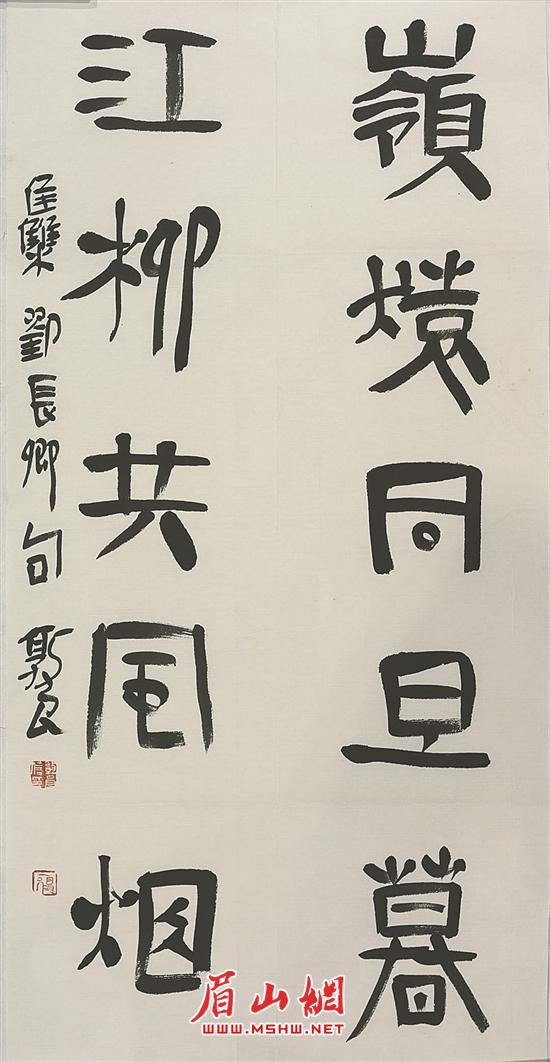 嶺猿同旦暮
江柳共風烟
劉長卿句
眉山網
WWW.MSHW.NET